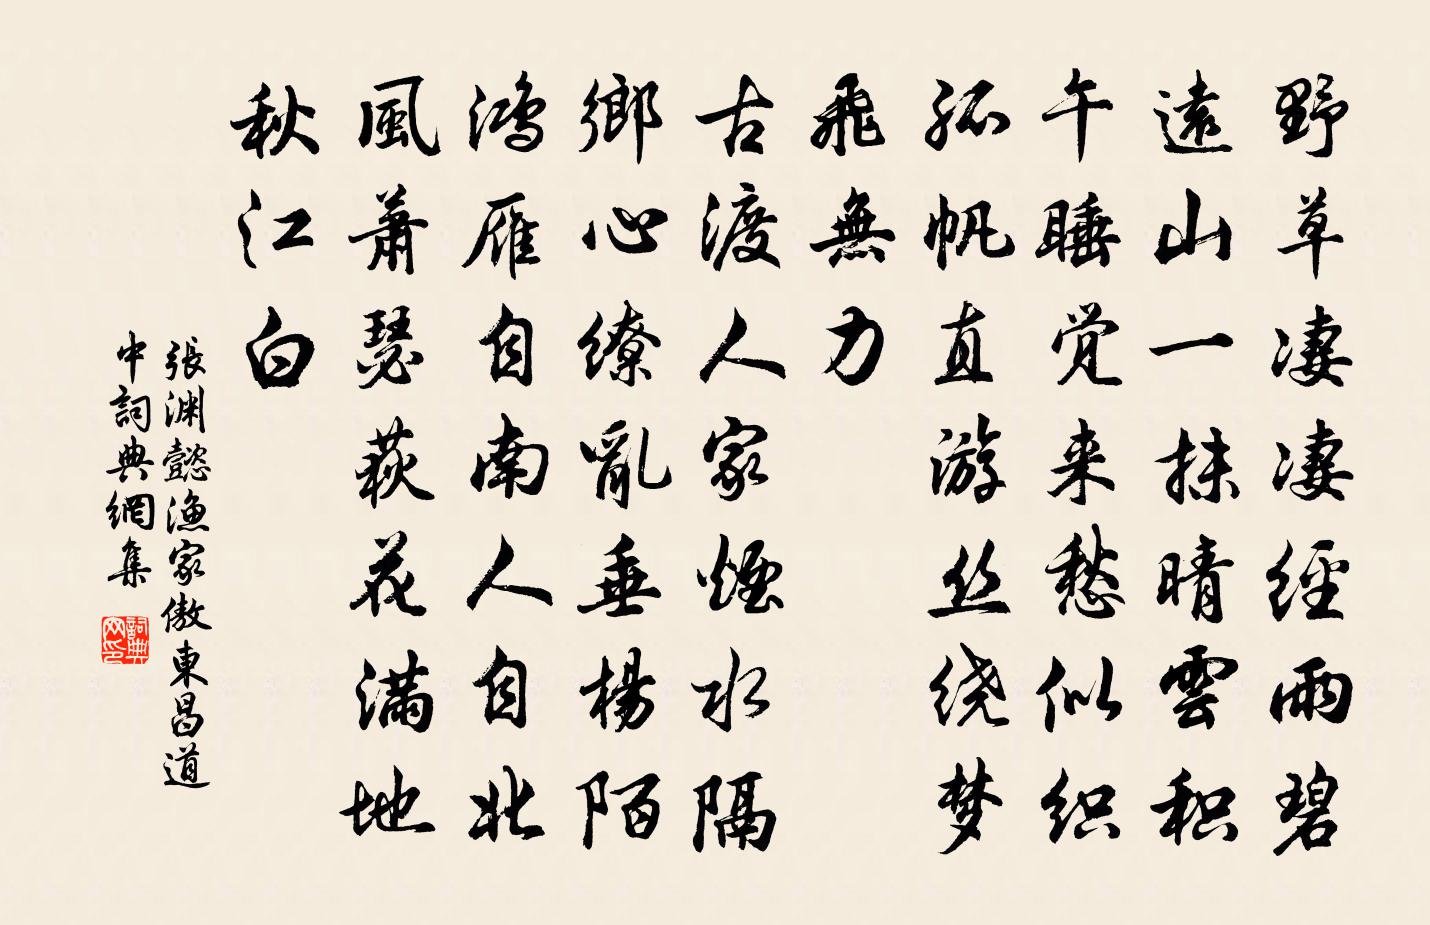 野草凄凄经雨碧
遠山一抹晴雲积
午睡觉来愁似织
孤帆直游丝绕梦
飛無力
古渡人家煙水隔
鄉心缭亂垂楊陌
鴻雁自南人自北
風萧瑟荻花满地
秋江白
張渊懿漁家傲東昌道
中詞典網集
詞典网印